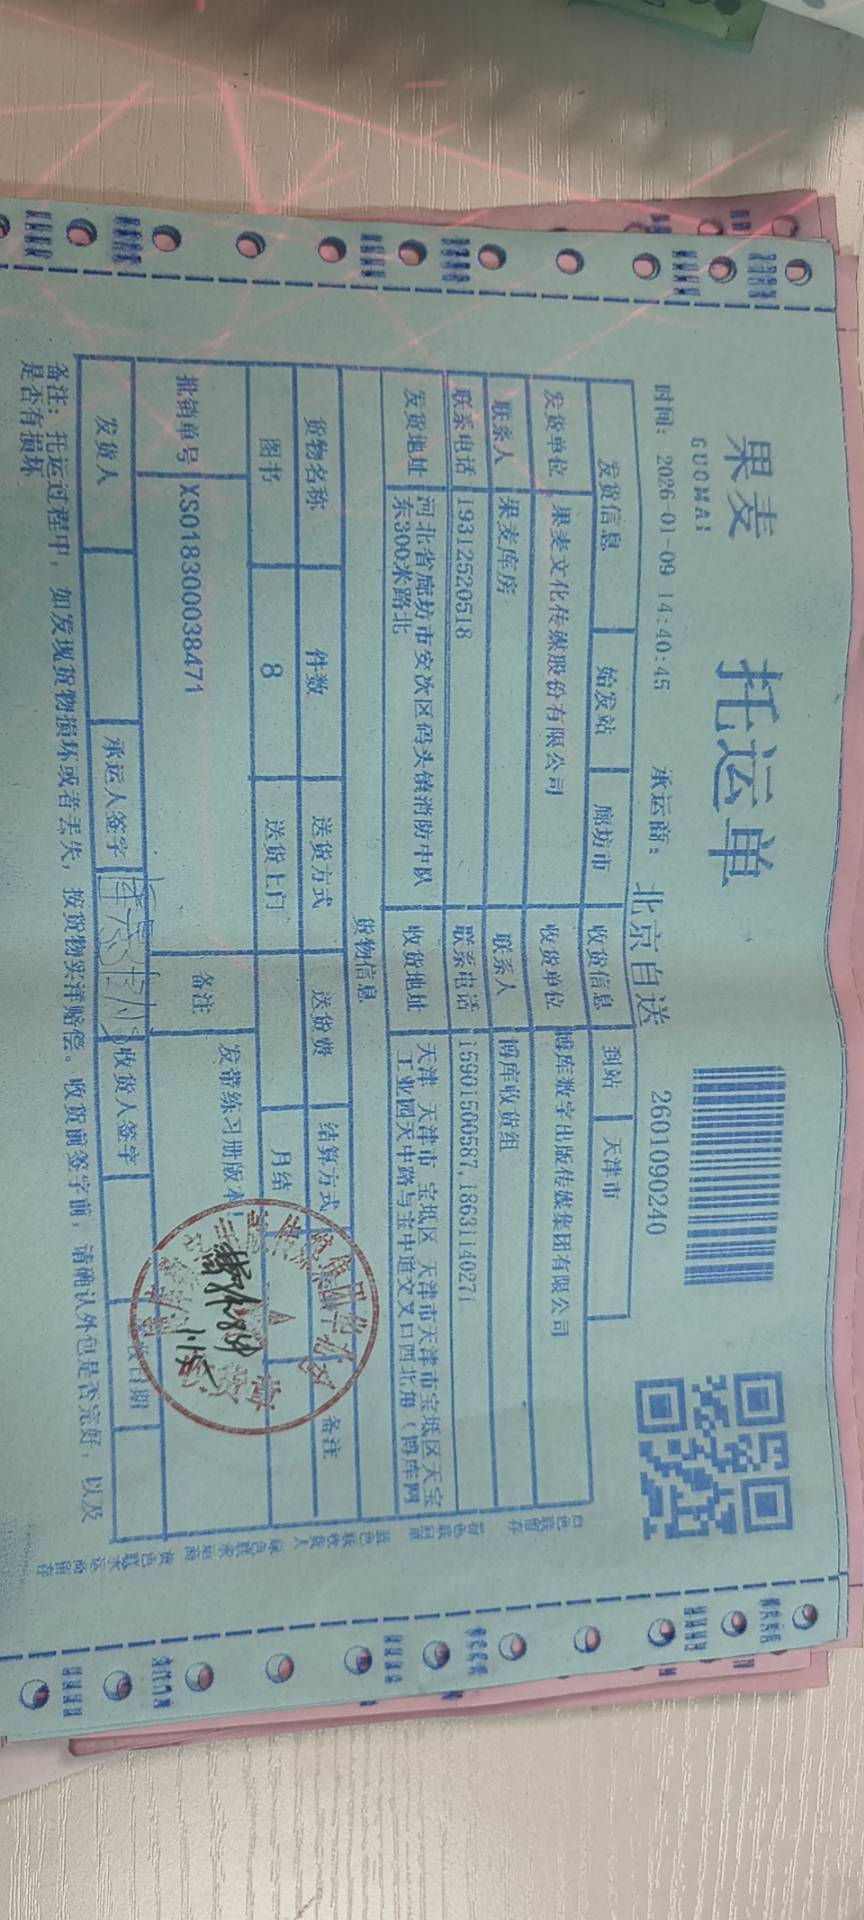 果麦
GUOMAI
托运单
时间: 2026-01-09 14:40:45 承运商: 北京自送 2601090240
发货信息 始发站 廊坊市 收货信息 到站 天津市
发货单位 果麦文化传媒股份有限公司 收货单位 博库数字出版传媒集团有限公司
联系人 果麦库房 联系人 博库收货组
联系电话 19312520518 联系电话 15901500587,18631140271
发货地址 河北省廊坊市安次区码头镇消防中队东300米路北 收货地址 天津 天津市 宝坻区 天津市天津市宝坻区天宝工业园天中路与宝中道交叉口西北角(博库网
货物信息
货物名称 件数 送货方式 送货费 结算方式 备注
图书 8 送货上门 月结
批销单号 XS018300038471 备注 发带练习册版本
发货人 承运人签字 收货人签字 收日期
备注: 托运过程中, 如发现货物损坏或者丢失, 按货物实洋赔偿。收货前签字前, 请确认外包是否完好, 以及
是否有损坏
白色联留存
粉色联回单
蓝色联收货人